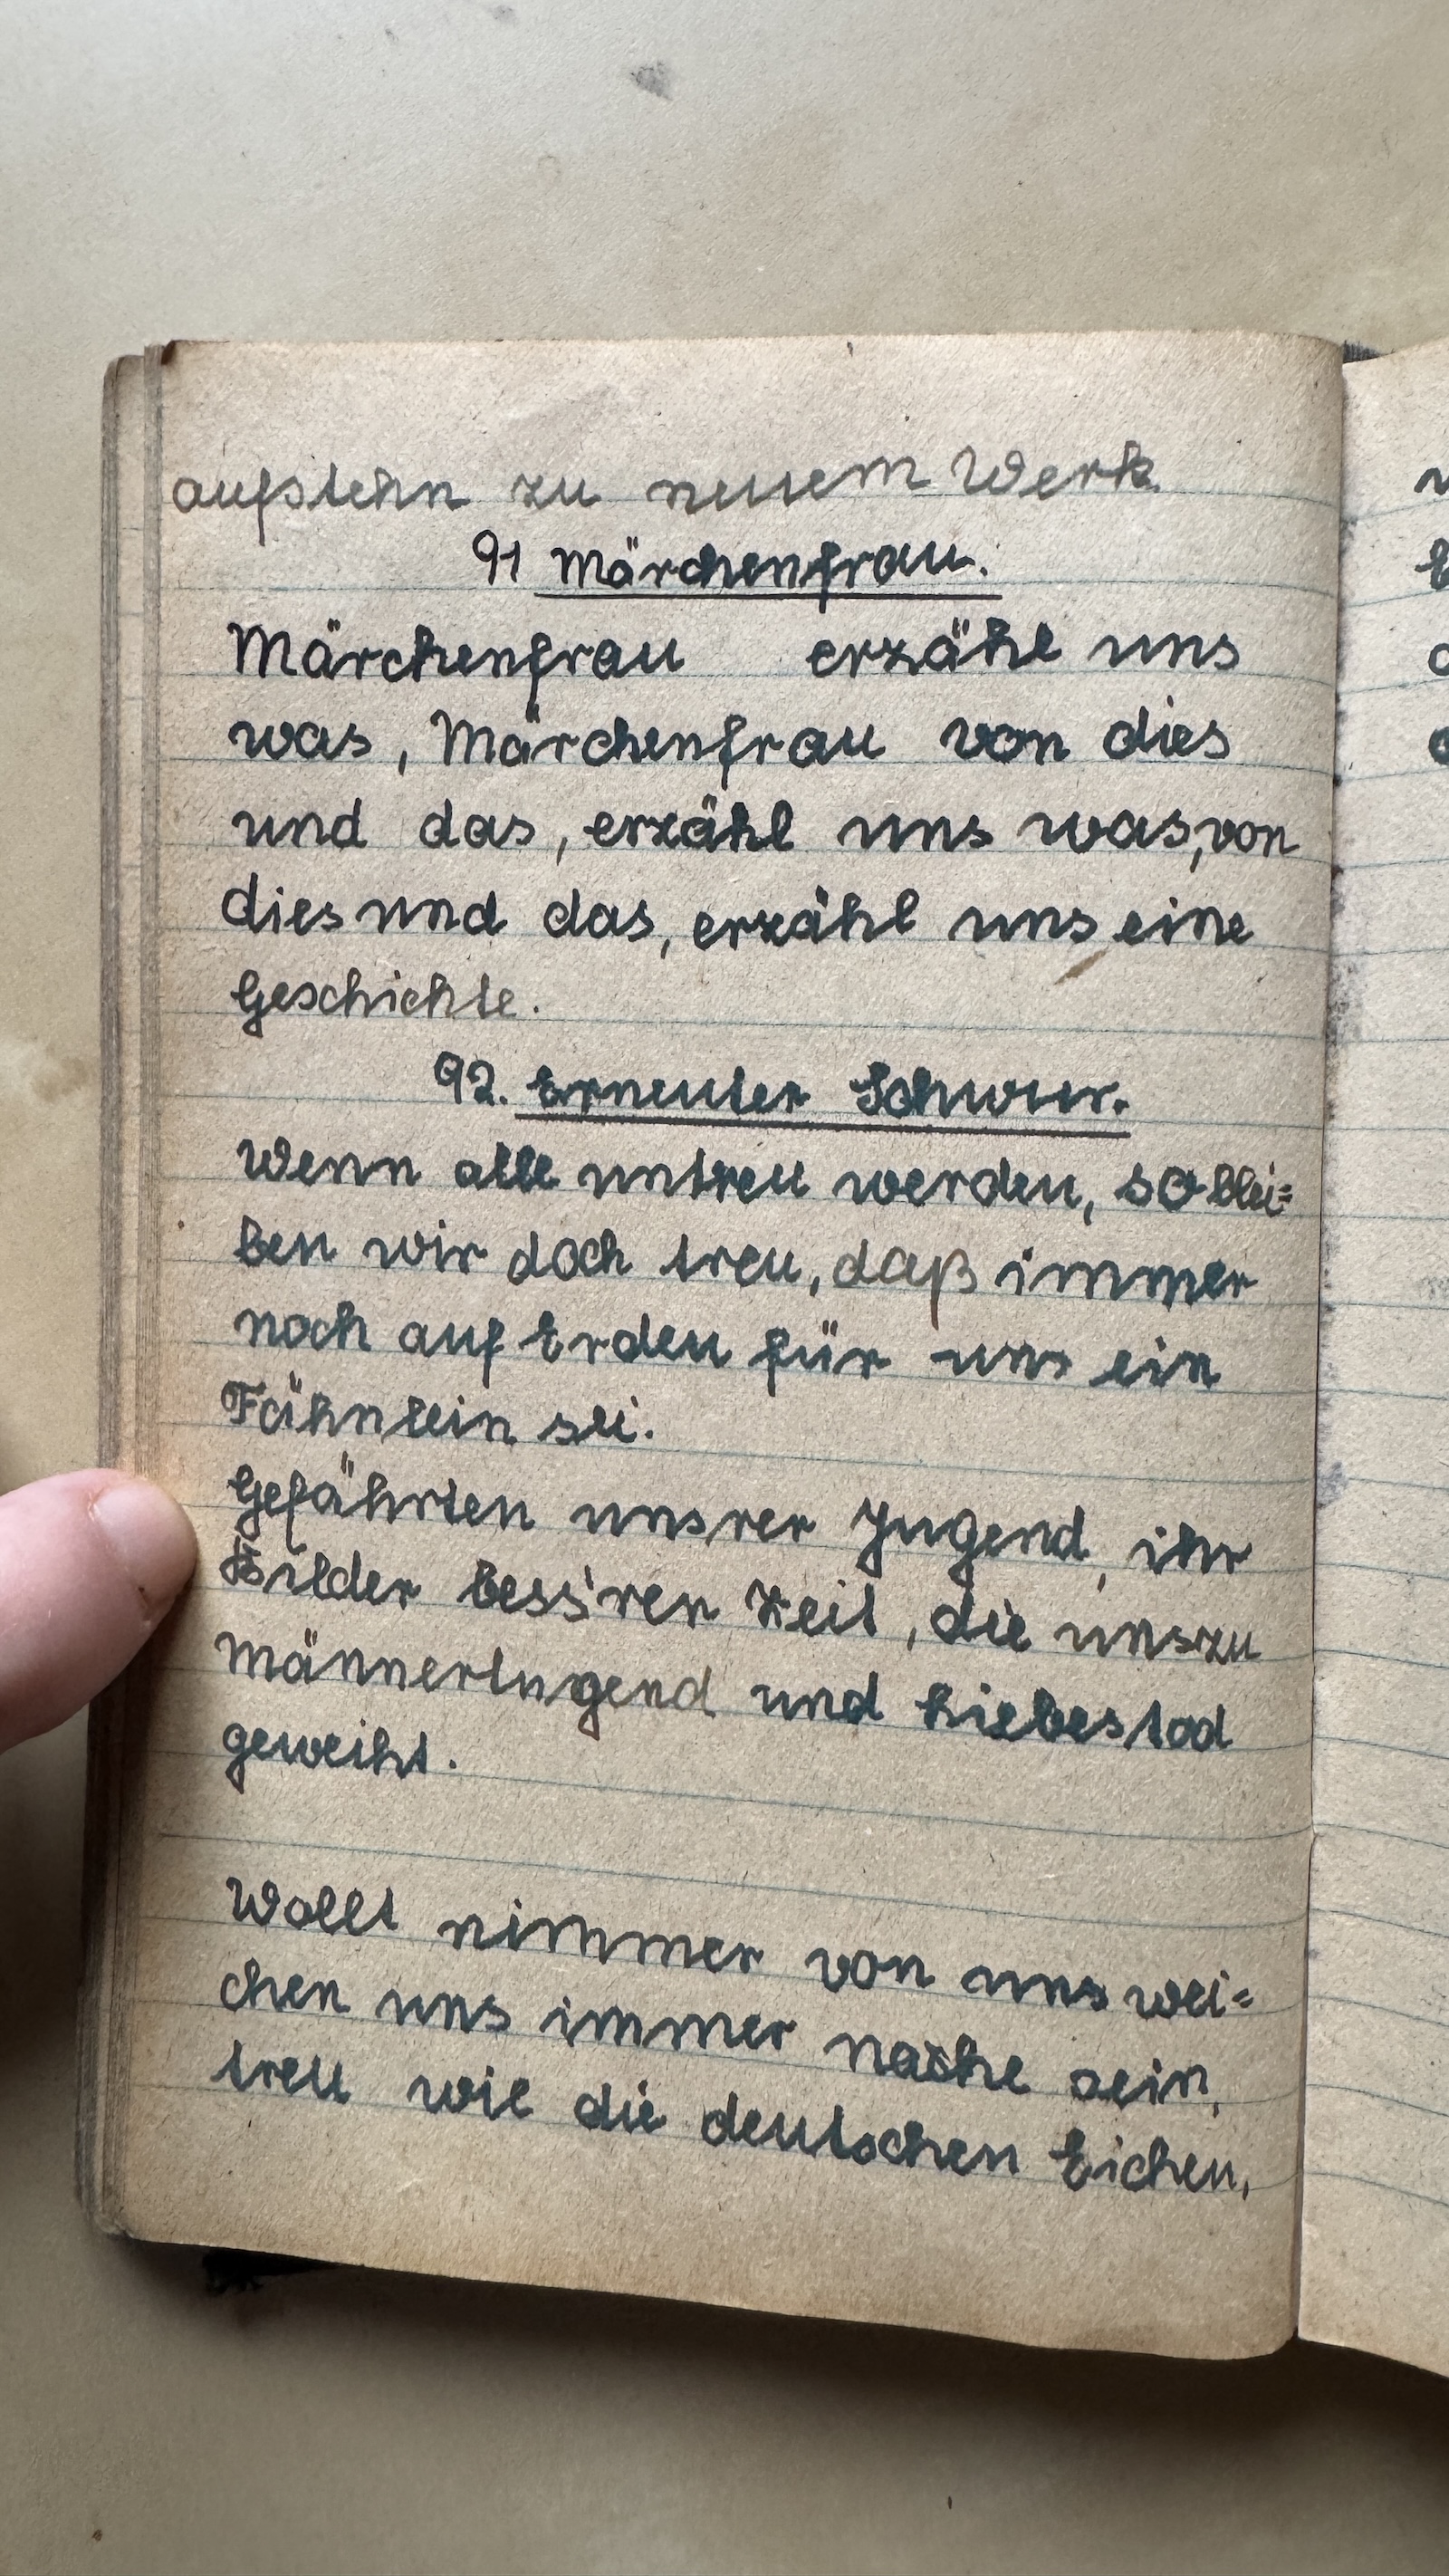 aufstehn zu neuem Werk.
91 Märchenfrau.
Märchenfrau erzähl uns
was, Märchenfrau von dies
und das, erzähl uns was, von
dies und das, erzähl uns eine
Geschichte.
92. Erneuter Schwur.
Wenn alle untreu werden, so blei=
ben wir doch treu, daß immer
noch auf Erden für uns ein
Fähnlein sei.
Gefährten unsrer Jugend, ihr
Bilder bess'rer Zeit, die uns zu
Männertugend und Liebestod
geweiht.
Wollt nimmer von uns wei=
chen uns immer nahe sein,
treu wie die deutschen Eichen,